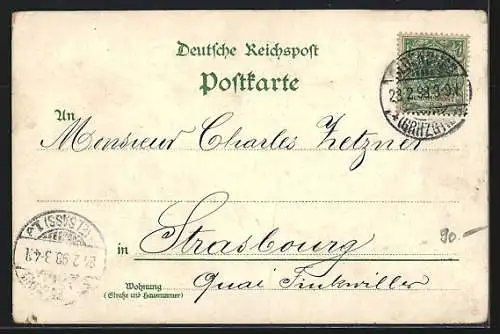 Deutsche Reichspost
Postkarte
23.2.98.3-9N.
An
Monsieur Charles Zetzner
(ELSASS)
23.2.98.3-4N
in Strasbourg
90.-
Wohnung
(Straße und Hausnummer)
Quai Finkwiller